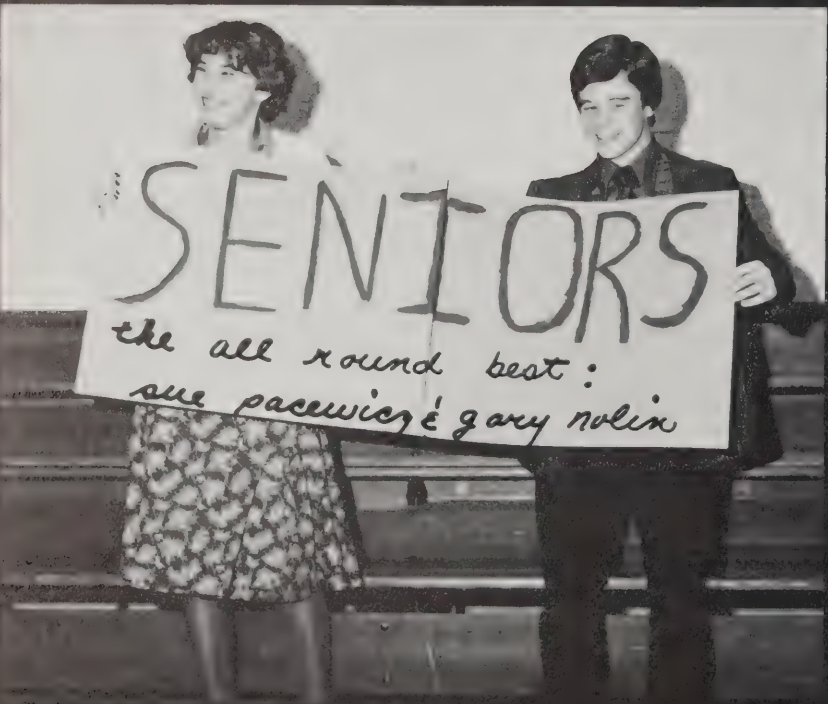 SENIORS
the all round best:
sue pacewicz & gary nolin